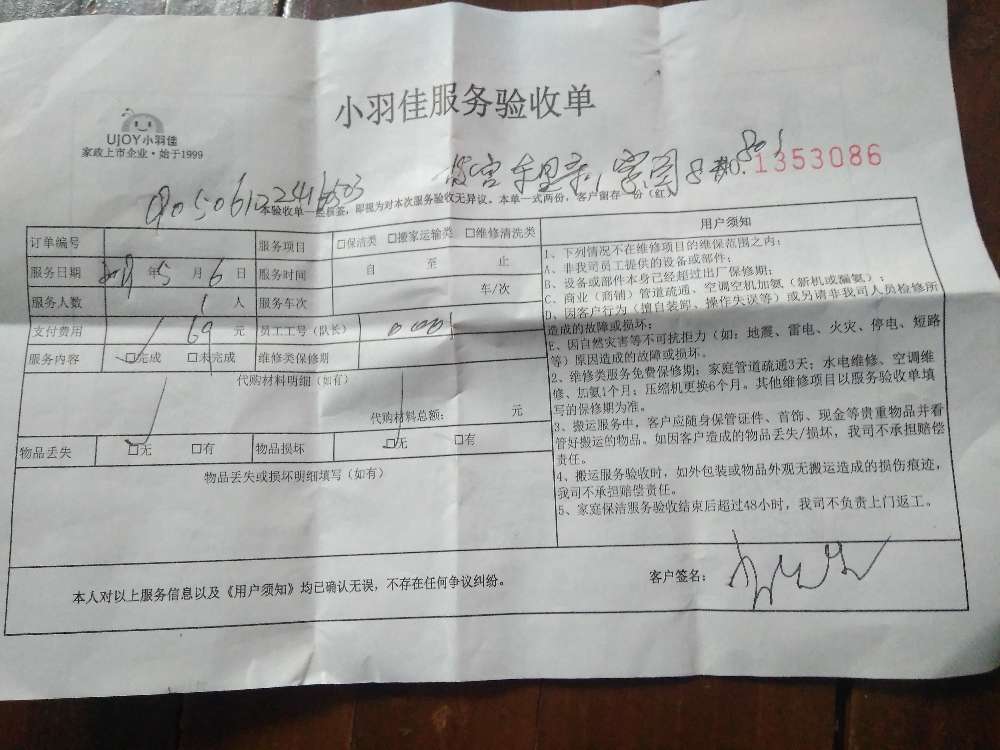 小羽佳服务验收单
UJOY小羽佳
家政上市企业·始于1999
NO.1353086
本验收单一经核签，即视为对本次服务验收无异议。本单一式两份，客户留存一份（红）
订单编号 服务项目 □保洁类 □搬家运输类 □维修清洗类
服务日期 年5月6日 服务时间 自 至 止
服务人数 1 人 服务车次 车/次
支付费用 169 元 员工工号（队长）
服务内容 □完成 □未完成 维修类保修期
代购材料明细（如有）
代购材料总额： 元
物品丢失 □无 □有 物品损坏 □无 □有
物品丢失或损坏明细填写（如有）
用户须知
1、下列情况不在维修项目的维保范围之内：
A、非我司员工提供的设备或部件；
B、设备或部件本身已经超过出厂保修期；
C、商业（商铺）管道疏通、空调空机加氨（新机或漏氨）；
D、因客户行为（擅自装卸、操作失误等）或另请非我司人员检修所
造成的故障或损坏；
E、因自然灾害等不可抗拒力（如：地震、雷电、火灾、停电、短路
等）原因造成的故障或损坏。
2、维修类服务免费保修期：家庭管道疏通3天；水电维修、空调维
修、加氨1个月；压缩机更换6个月。其他维修项目以服务验收单填
写的保修期为准。
3、搬运服务中，客户应随身保管证件、首饰、现金等贵重物品并看
管好搬运的物品。如因客户造成的物品丢失/损坏，我司不承担赔偿
责任。
4、搬运服务验收时，如外包装或物品外观无搬运造成的损伤痕迹，
我司不承担赔偿责任。
5、家庭保洁服务验收结束后超过48小时，我司不负责上门返工。
本人对以上服务信息以及《用户须知》均已确认无误，不存在任何争议纠纷。
客户签名：